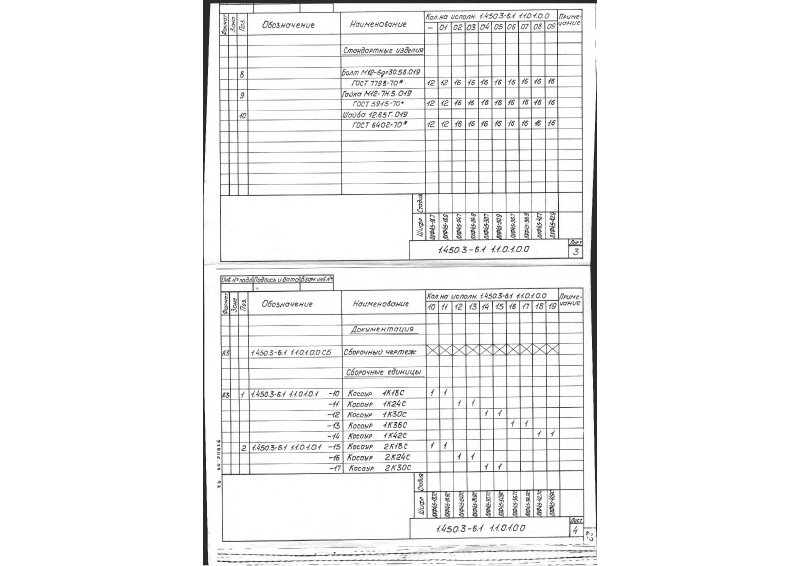 Формат Зона Поз. Обозначение Наименование Кол. на исполн. 1.450.3-6.1 1.1.0.1.0.0 Приме-
чание
— 01 02 03 04 05 06 07 08 09
Стандартные изделия
8 Болт М12-6g×30.58.019
ГОСТ 7798-70* 12 12 16 16 16 16 16 16 16 16
9 Гайка М12-7Н.5.019
ГОСТ 5915-70* 12 12 16 16 16 16 16 16 16 16
10 Шайба 12.65Г.019
ГОСТ 6402-70* 12 12 16 16 16 16 16 16 16 16
Стадия
Шифр
1.450.3-6.1 1.1.0.1.0.0
Лист
3
Инв.№ подл. Подпись и дата Взам. инв.№
Формат Зона Поз. Обозначение Наименование Кол. на исполн. 1.450.3-6.1 1.1.0.1.0.0 Приме-
чание
10 11 12 13 14 15 16 17 18 19
Документация
А3 1.450.3-6.1 1.1.0.1.0.0 СБ Сборочный чертеж
Сборочные единицы
А3 1 1.450.3-6.1 1.1.0.1.0.1 -10 Косоур 1К18С 1 1
-11 Косоур 1К24С 1 1
-12 Косоур 1К30С 1 1
-13 Косоур 1К36С 1 1
-14 Косоур 1К42С 1 1
2 1.450.3-6.1 1.1.0.1.0.1 -15 Косоур 2К18С 1 1
-16 Косоур 2К24С 1 1
-17 Косоур 2К30С 1 1
Стадия
Шифр
1.450.3-6.1 1.1.0.1.0.0
Лист
4